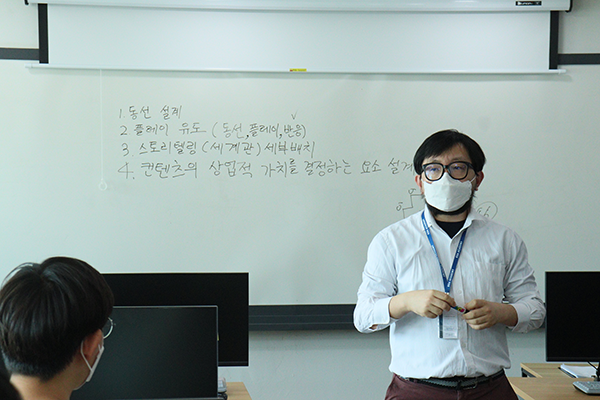 1. 동선 설계
2 플레이 유도 (동선, 플레이, 반응)
3 스토리텔링 (세계관) 세부배치
4. 컨텐츠의 상업적 가치를 결정하는 요소 설계